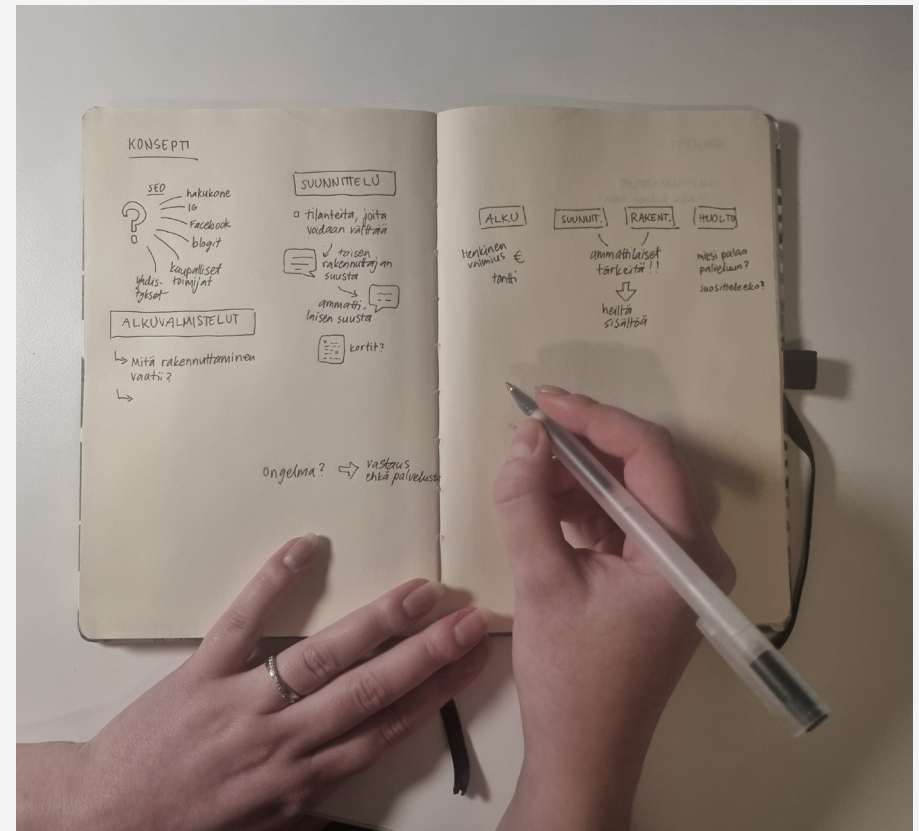 KONSEPTI
SEO
?
hakukone
IG
Facebook
blogit
kaupalliset
toimijat
yhdis-
tykset
ALKUVALMISTELUT
↳ Mitä rakennuttaminen
vaatii?
↳
SUUNNITTELU
tilanteita, joita
voidaan välttää
toisen
rakennuttajan
suusta
ammatti-
laisen suusta
kortit?
Ongelma? ⇨ vastaus
ehkä palvelusta
ALKU
Henkinen
valmius €
tontti
SUUNNIT.
RAKENT.
ammattilaiset
tärkeitä!!
heiltä
sisältöä
HUOLTO
miksi palaa
palveluun?
suositteleeko?